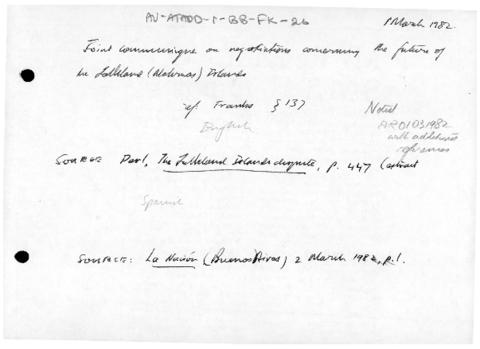 AV-ATADD-1-BB-FK-26
1 March 1982.
Joint communique on negotiations concerning the future of
the Falkland (Malvinas) Islands
cf. Franks § 137
Noted
AR01031982
with additional
references
English
SOURCE: Perl, The Falkland Islands dispute, p. 447 (extract
Spanish
SOURCE: La Nación (Buenos Aires) 2 March 1982, p.1.